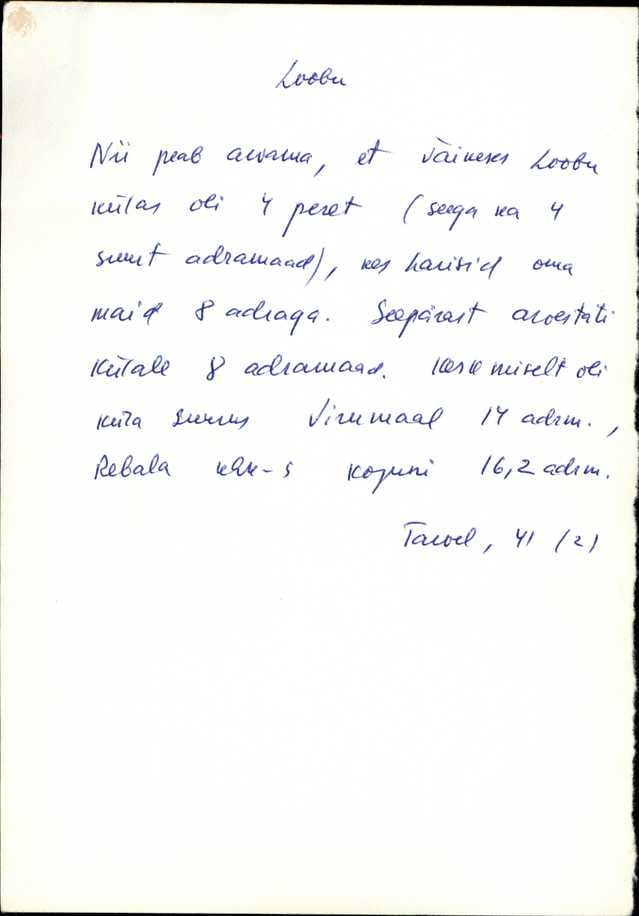 Loobu
Nii peab arvama, et väikeses Loobu
külas oli 4 peret (seega ka 4
suurt adramaad), kes harisid oma
maid 8 adraga. Seepärast arvestati
külale 8 adramaad. Keskmiselt oli
küla suurus Virumaal 14 adrm.,
Rebala khk-s koguni 16,2 adrm.
Tarvel, 41 (2)